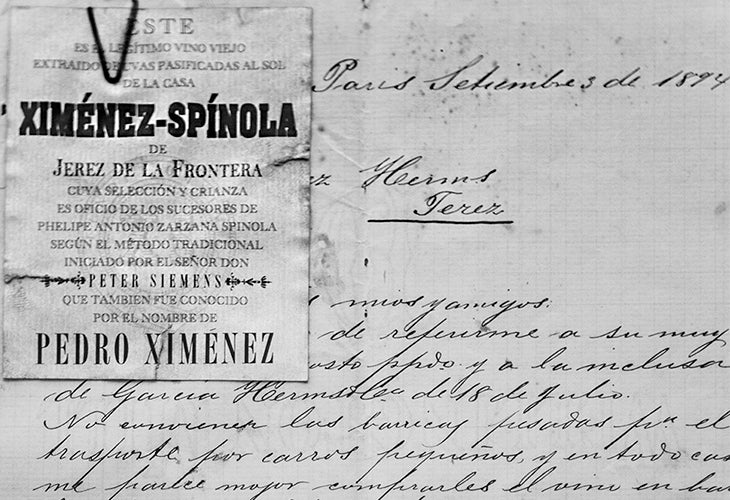 ESTE
ES EL LEGÍTIMO VINO VIEJO
EXTRAIDO DE UVAS PASIFICADAS AL SOL
DE LA CASA
XIMÉNEZ-SPÍNOLA
DE
JEREZ DE LA FRONTERA
CUYA SELECCIÓN Y CRIANZA
ES OFICIO DE LOS SUCESORES DE
PHELIPE ANTONIO ZARZANA SPINOLA
SEGÚN EL MÉTODO TRADICIONAL
INICIADO POR EL SEÑOR DON
PETER SIEMENS
QUE TAMBIEN FUE CONOCIDO
POR EL NOMBRE DE
PEDRO XIMÉNEZ
Paris Setiembre 3 de 1894
ez Herms
Jerez
s mios y amigos.
de referirme a su muy
osto ppdo y a la inclusa
de García Herms & Ca de 18 de Julio.
No convienen las barricas pesadas pa el
trasporte por carros pequeños, y en todo cas
me parece mejor comprarles el vino en bar